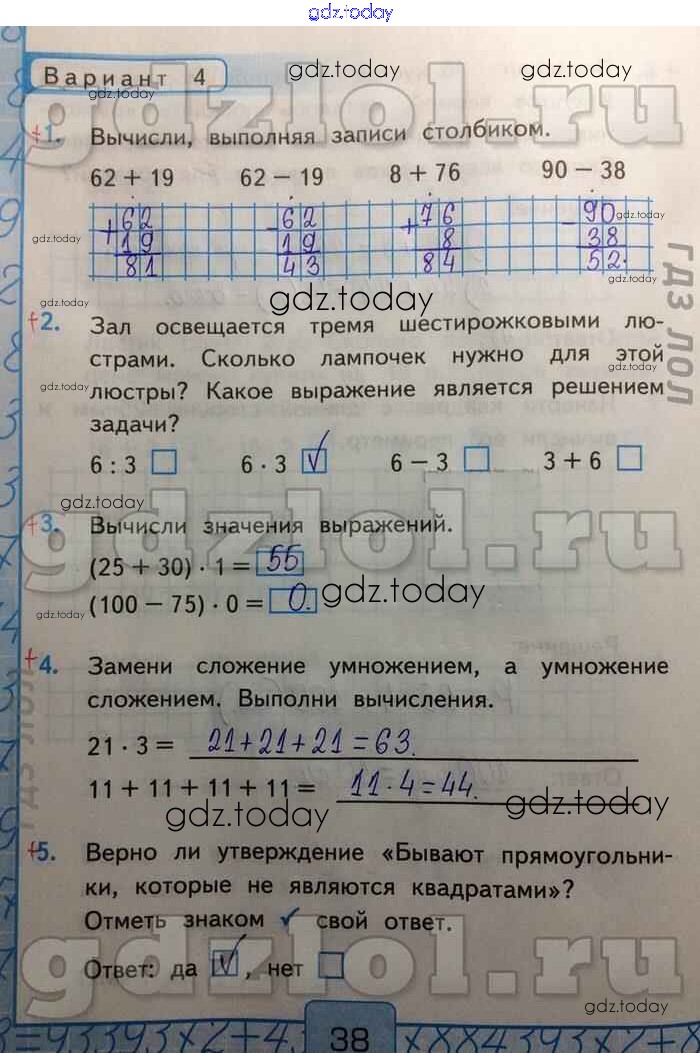 gdz.today
Вариант 4
gdz.today
gdz.today
gdz.today
gdzlol.ru
1. Вычисли, выполняя записи столбиком.
62 + 19 62 − 19 8 + 76 90 − 38
+62 −62 +76 −90
19 19 8 38
81 43 84 52.
gdz.today
gdz.today
gdz.today
ГДЗ ЛОЛ
2. Зал освещается тремя шестирожковыми лю-
страми. Сколько лампочек нужно для этой
люстры? Какое выражение является решением
задачи?
gdz.today
gdz.today
6 : 3 6 · 3 V 6 − 3 3 + 6
gdz.today
gdz.today
gdzlol.ru
3. Вычисли значения выражений.
(25 + 30) · 1 = 55
(100 − 75) · 0 = 0.
gdz.today
gdz.today
4. Замени сложение умножением, а умножение
сложением. Выполни вычисления.
21 · 3 = 21+21+21=63.
11 + 11 + 11 + 11 = 11·4=44.
ГДЗ ЛОЛ
gdz.today
gdz.today
5. Верно ли утверждение «Бывают прямоугольни-
ки, которые не являются квадратами»?
Отметь знаком ✓ свой ответ.
Ответ: да V, нет
gdzlol.ru
gdz.today
38